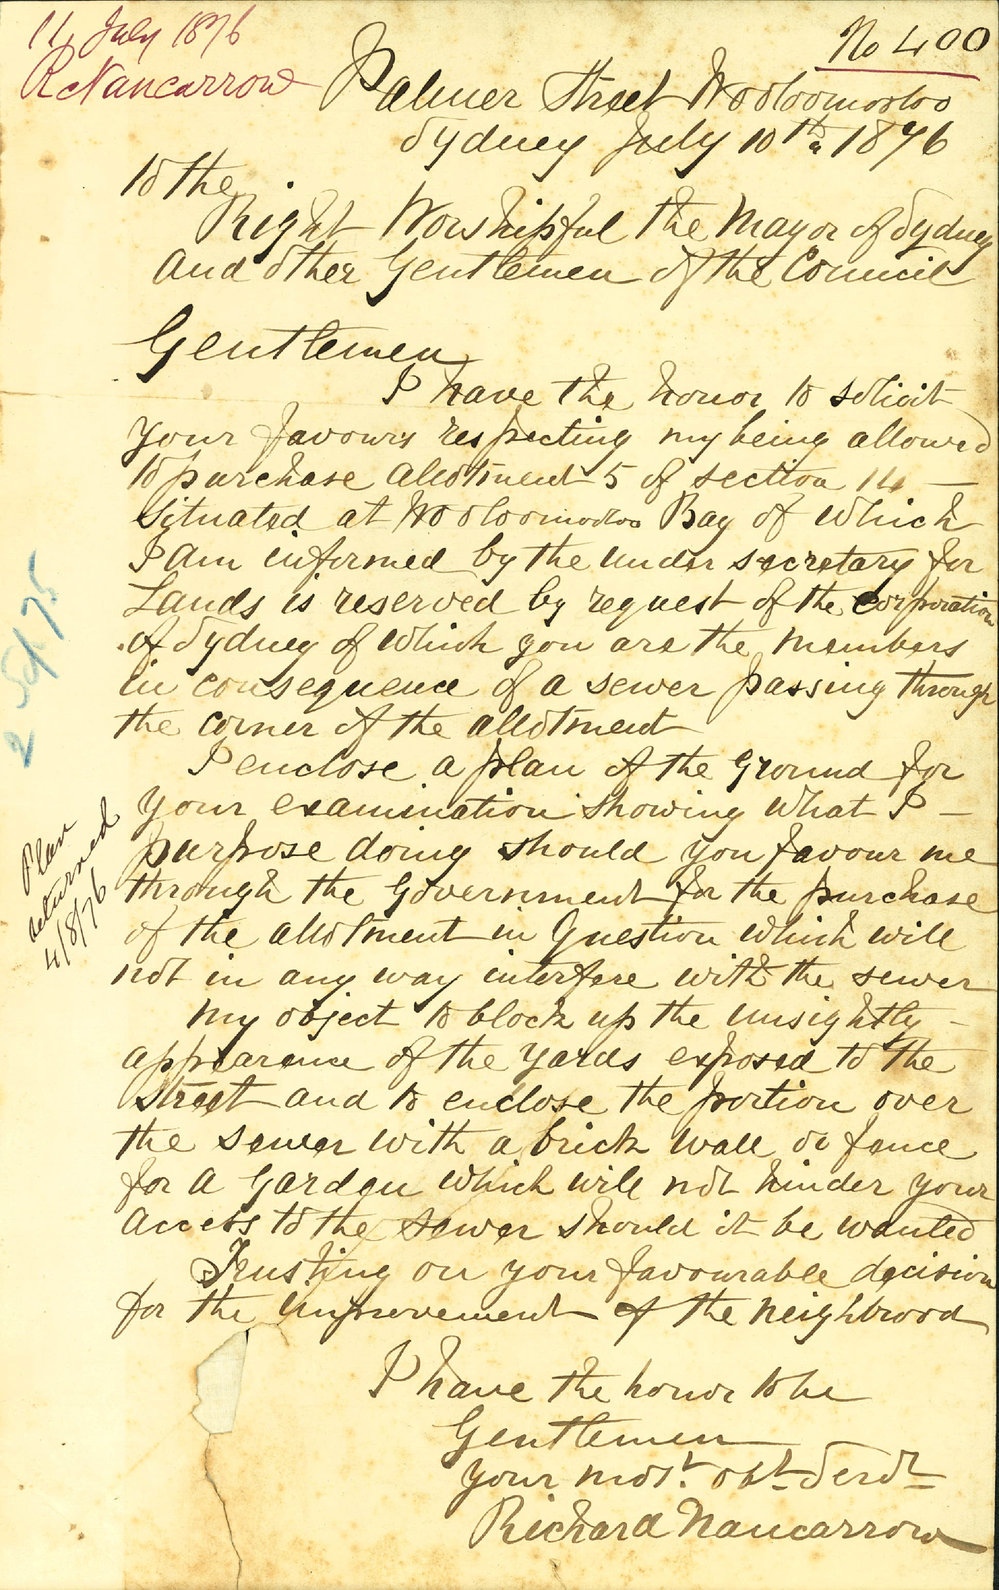 11 July 1876
R Nancarrow
No 400
Palmer Street Wooloomooloo
Sydney July 10th 1876
To the
Right Worshipful the Mayor of Sydney
and other Gentlemen of the Council
Gentlemen
I have the honor to solicit
your favours respecting my being allowed
to purchase allotment 5 of section 14 —
situated at Wooloomooloo Bay of which
I am informed by the under secretary for
Lands is reserved by request of the corporation
of Sydney of which you are the members
in consequence of a sewer passing through
the corner of the allotment
I enclose a plan of the ground for
your examination showing what I —
purpose doing should you favour me
through the Government for the purchase
of the allotment in Question which will
not in any way interfere with the sewer
My object to block up the unsightly —
appearance of the yards exposed to the
Street and to enclose the portion over
the sewer with a brick wall or fence
for a Garden which will not hinder your
access to the sewer should it be wanted
Trusting on your favourable decision
for the improvement of the neighbrood
I have the honor to be
Gentlemen
your most. obt Servt
Richard Nancarrow
2 Sep/75
Plan
returned
4/8/76